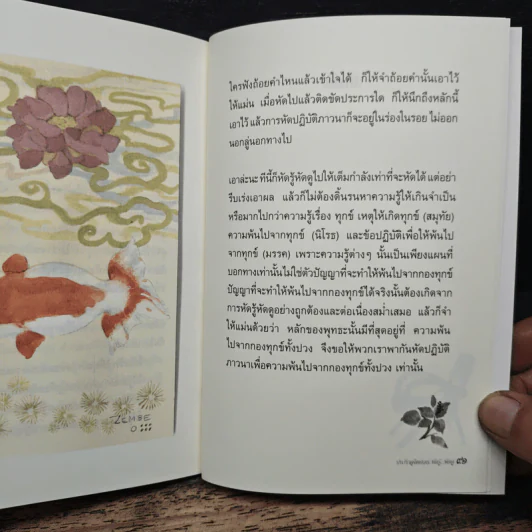 ZEMBE
ใครฟังถ้อยคำไหนแล้วเข้าใจได้ ก็ให้จำถ้อยคำนั้นเอาไว้
ให้แม่น เมื่อหัดไปแล้วติดขัดประการใด ก็ให้นึกถึงหลักนี้
เอาไว้ แล้วการหัดปฏิบัติภาวนาก็จะอยู่ในร่องในรอย ไม่ออก
นอกลู่นอกทางไป
เอาล่ะนะ ทีนี้ก็หัดรู้หัดดูไปให้เต็มกำลังเท่าที่จะหัดได้ แต่อย่า
รีบเร่งเอาผล แล้วก็ไม่ต้องดิ้นรนหาความรู้ให้เกินจำเป็น
หรือมากไปกว่าความรู้เรื่อง ทุกข์ เหตุให้เกิดทุกข์ (สมุทัย)
ความพ้นไปจากทุกข์ (นิโรธ) และข้อปฏิบัติเพื่อให้พ้นไป
จากทุกข์ (มรรค) เพราะความรู้ต่างๆ นั้นเป็นเพียงแผนที่
บอกทางเท่านั้นไม่ใช่ตัวปัญญาที่จะทำให้พ้นไปจากกองทุกข์
ปัญญาที่จะทำให้พ้นไปจากกองทุกข์ได้จริงนั้นต้องเกิดจาก
การหัดรู้หัดดูอย่างถูกต้องและต่อเนื่องสม่ำเสมอ แล้วก็จำ
ให้แม่นด้วยว่า หลักของพุทธะนั้นมีที่สุดอยู่ที่ ความพ้น
ไปจากกองทุกข์ทั้งปวง จึงขอให้พวกเราพากันหัดปฏิบัติ
ภาวนาเพื่อความพ้นไปจากกองทุกข์ทั้งปวง เท่านั้น
๙๑